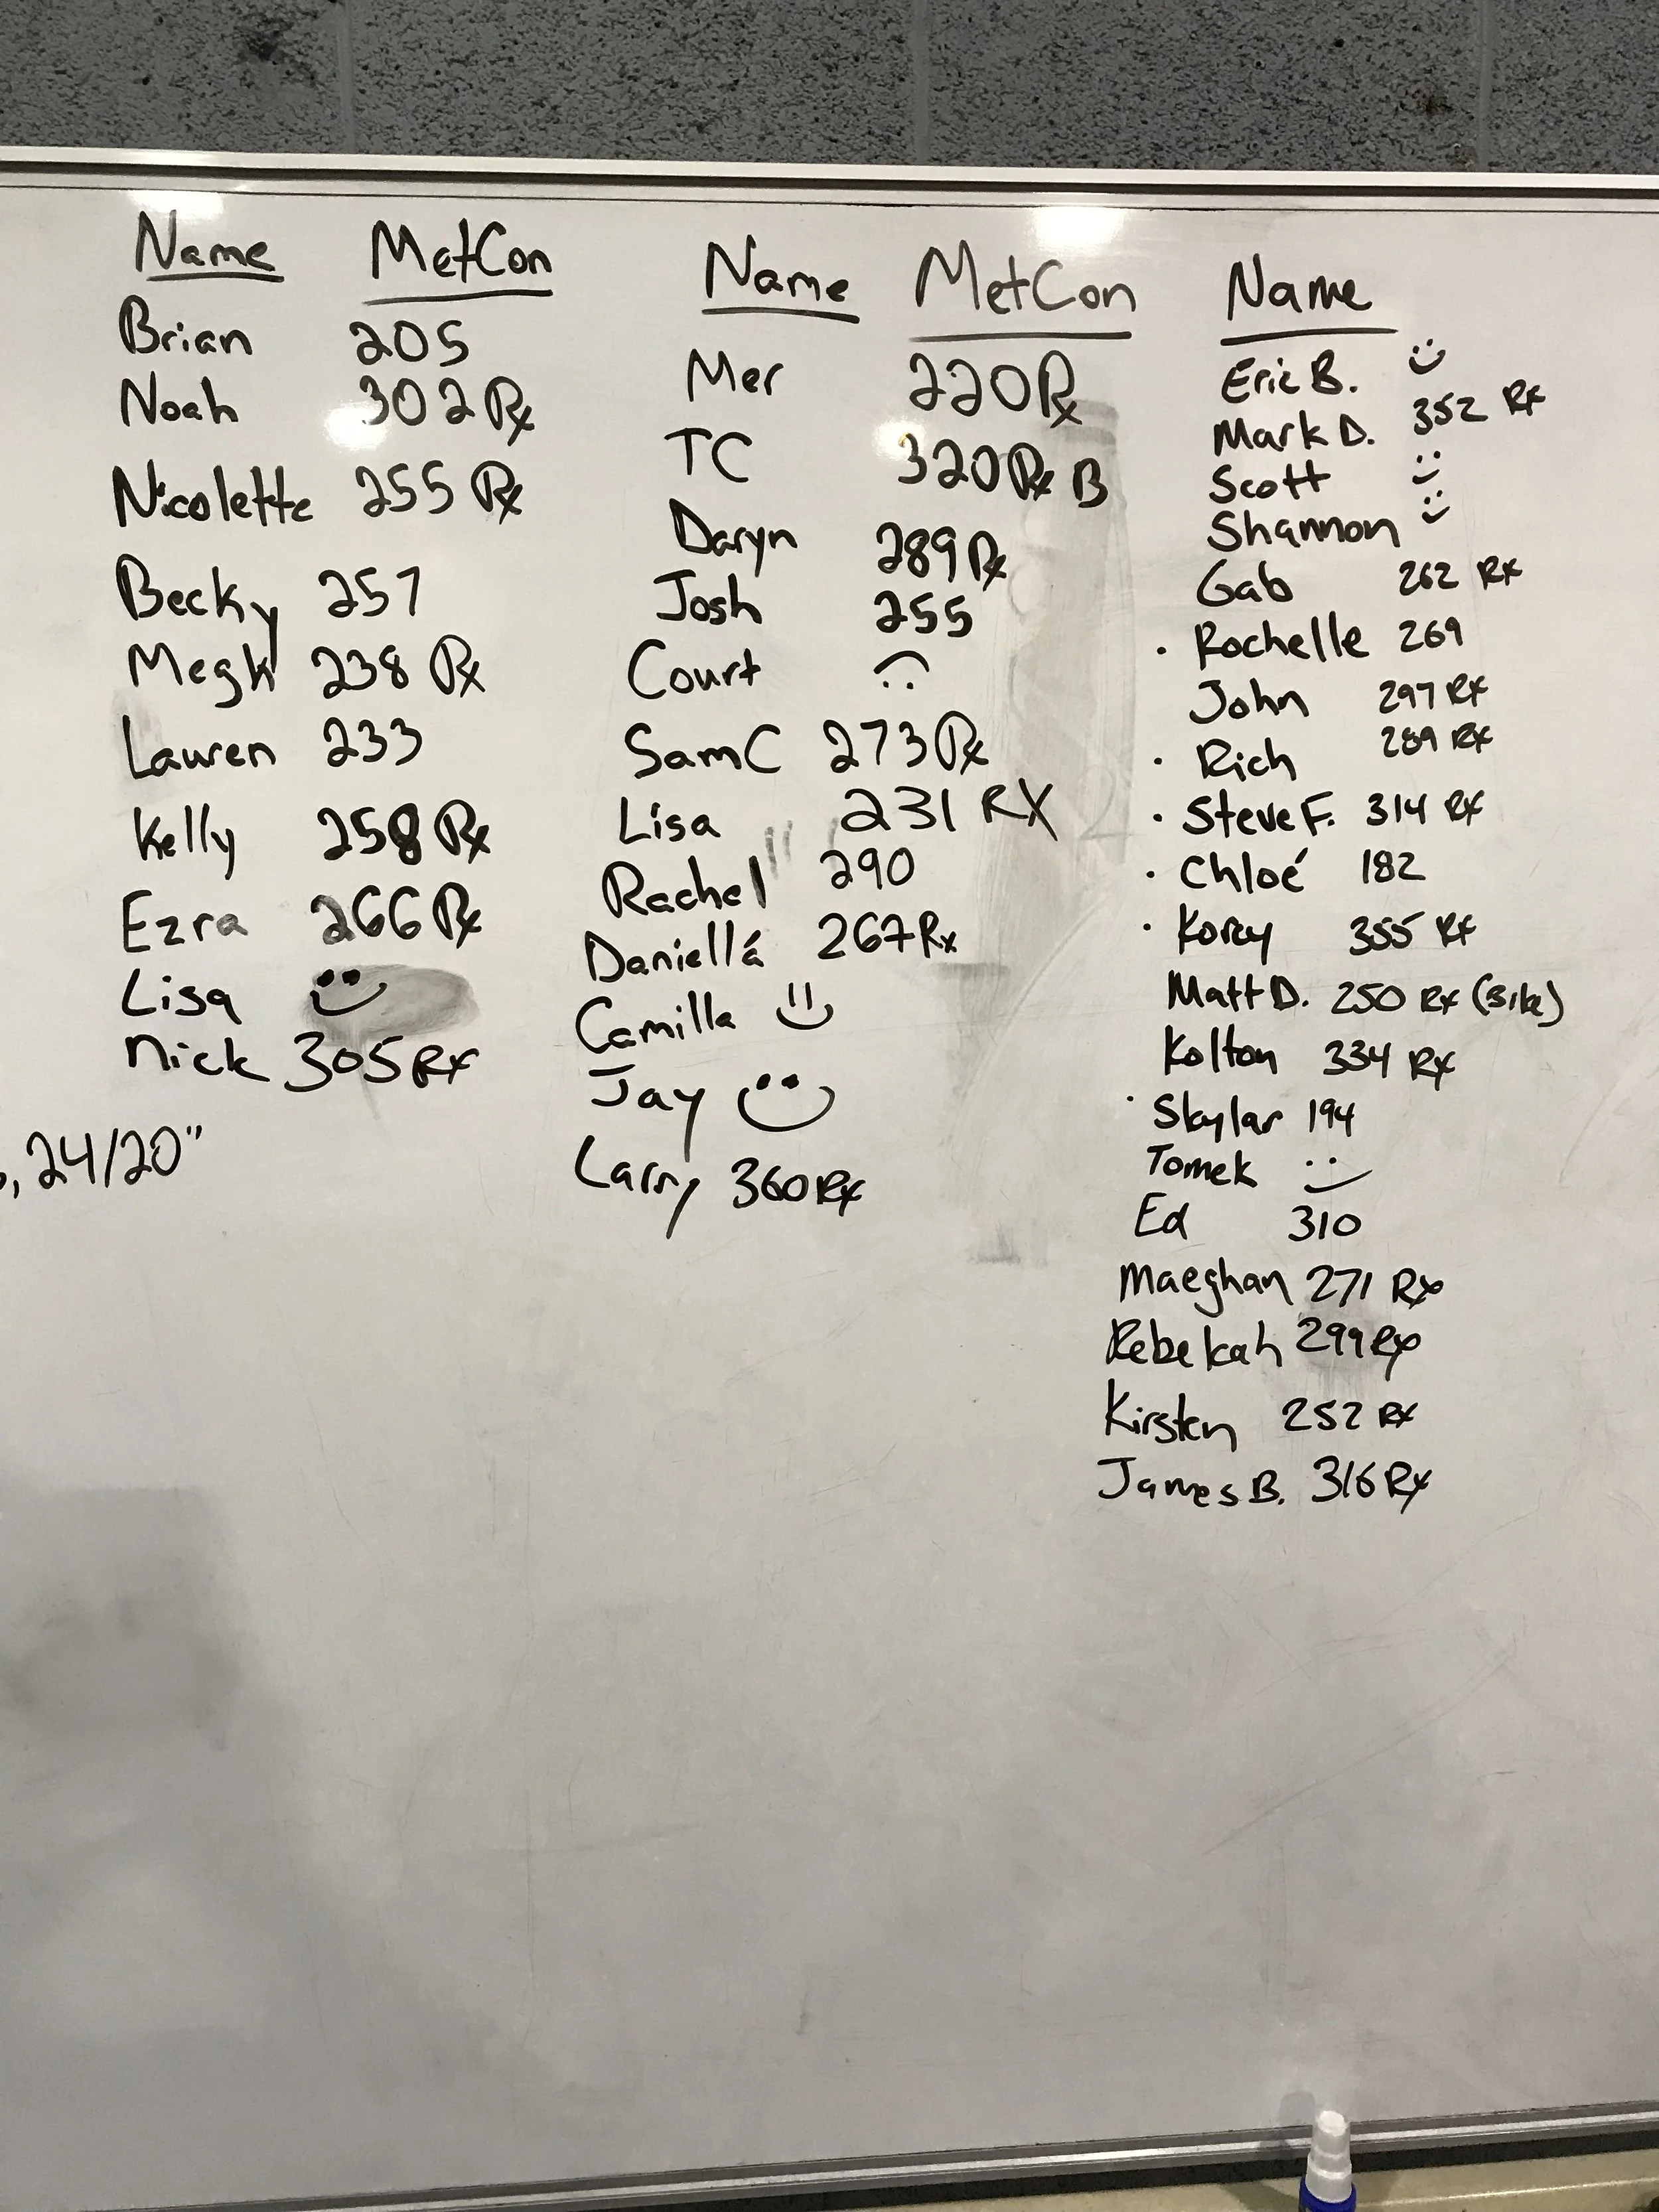 Name MetCon
Brian 205
Noah 302 Rx
Nicolette 255 Rx
Becky 257
Megk 238 Rx
Lauren 233
Kelly 258 Rx
Ezra 266 Rx
Lisa
Nick 305 Rx
, 24/20"
Name MetCon
Mer 220 Rx
TC 320 Rx B
Daryn 289 Rx
Josh 255
Court
Sam C 273 Rx
Lisa 231 RX
Rachel 290
Daniellá 267 Rx
Camilla
Jay
Larry 360 Rx
Name
Eric B.
Mark D. 352 Rx
Scott
Shannon
Gab 262 Rx
· Rochelle 269
John 297 Rx
· Rich 289 Rx
· Steve F. 314 Rx
· Chloé 182
· Korey 355 Rx
Matt D. 250 Rx (Bike)
Kolton 334 Rx
· Skylar 194
Tomek
Ed 310
Maeghan 271 Rx
Rebekah 299 Rx
Kirsten 252 Rx
James B. 316 Rx